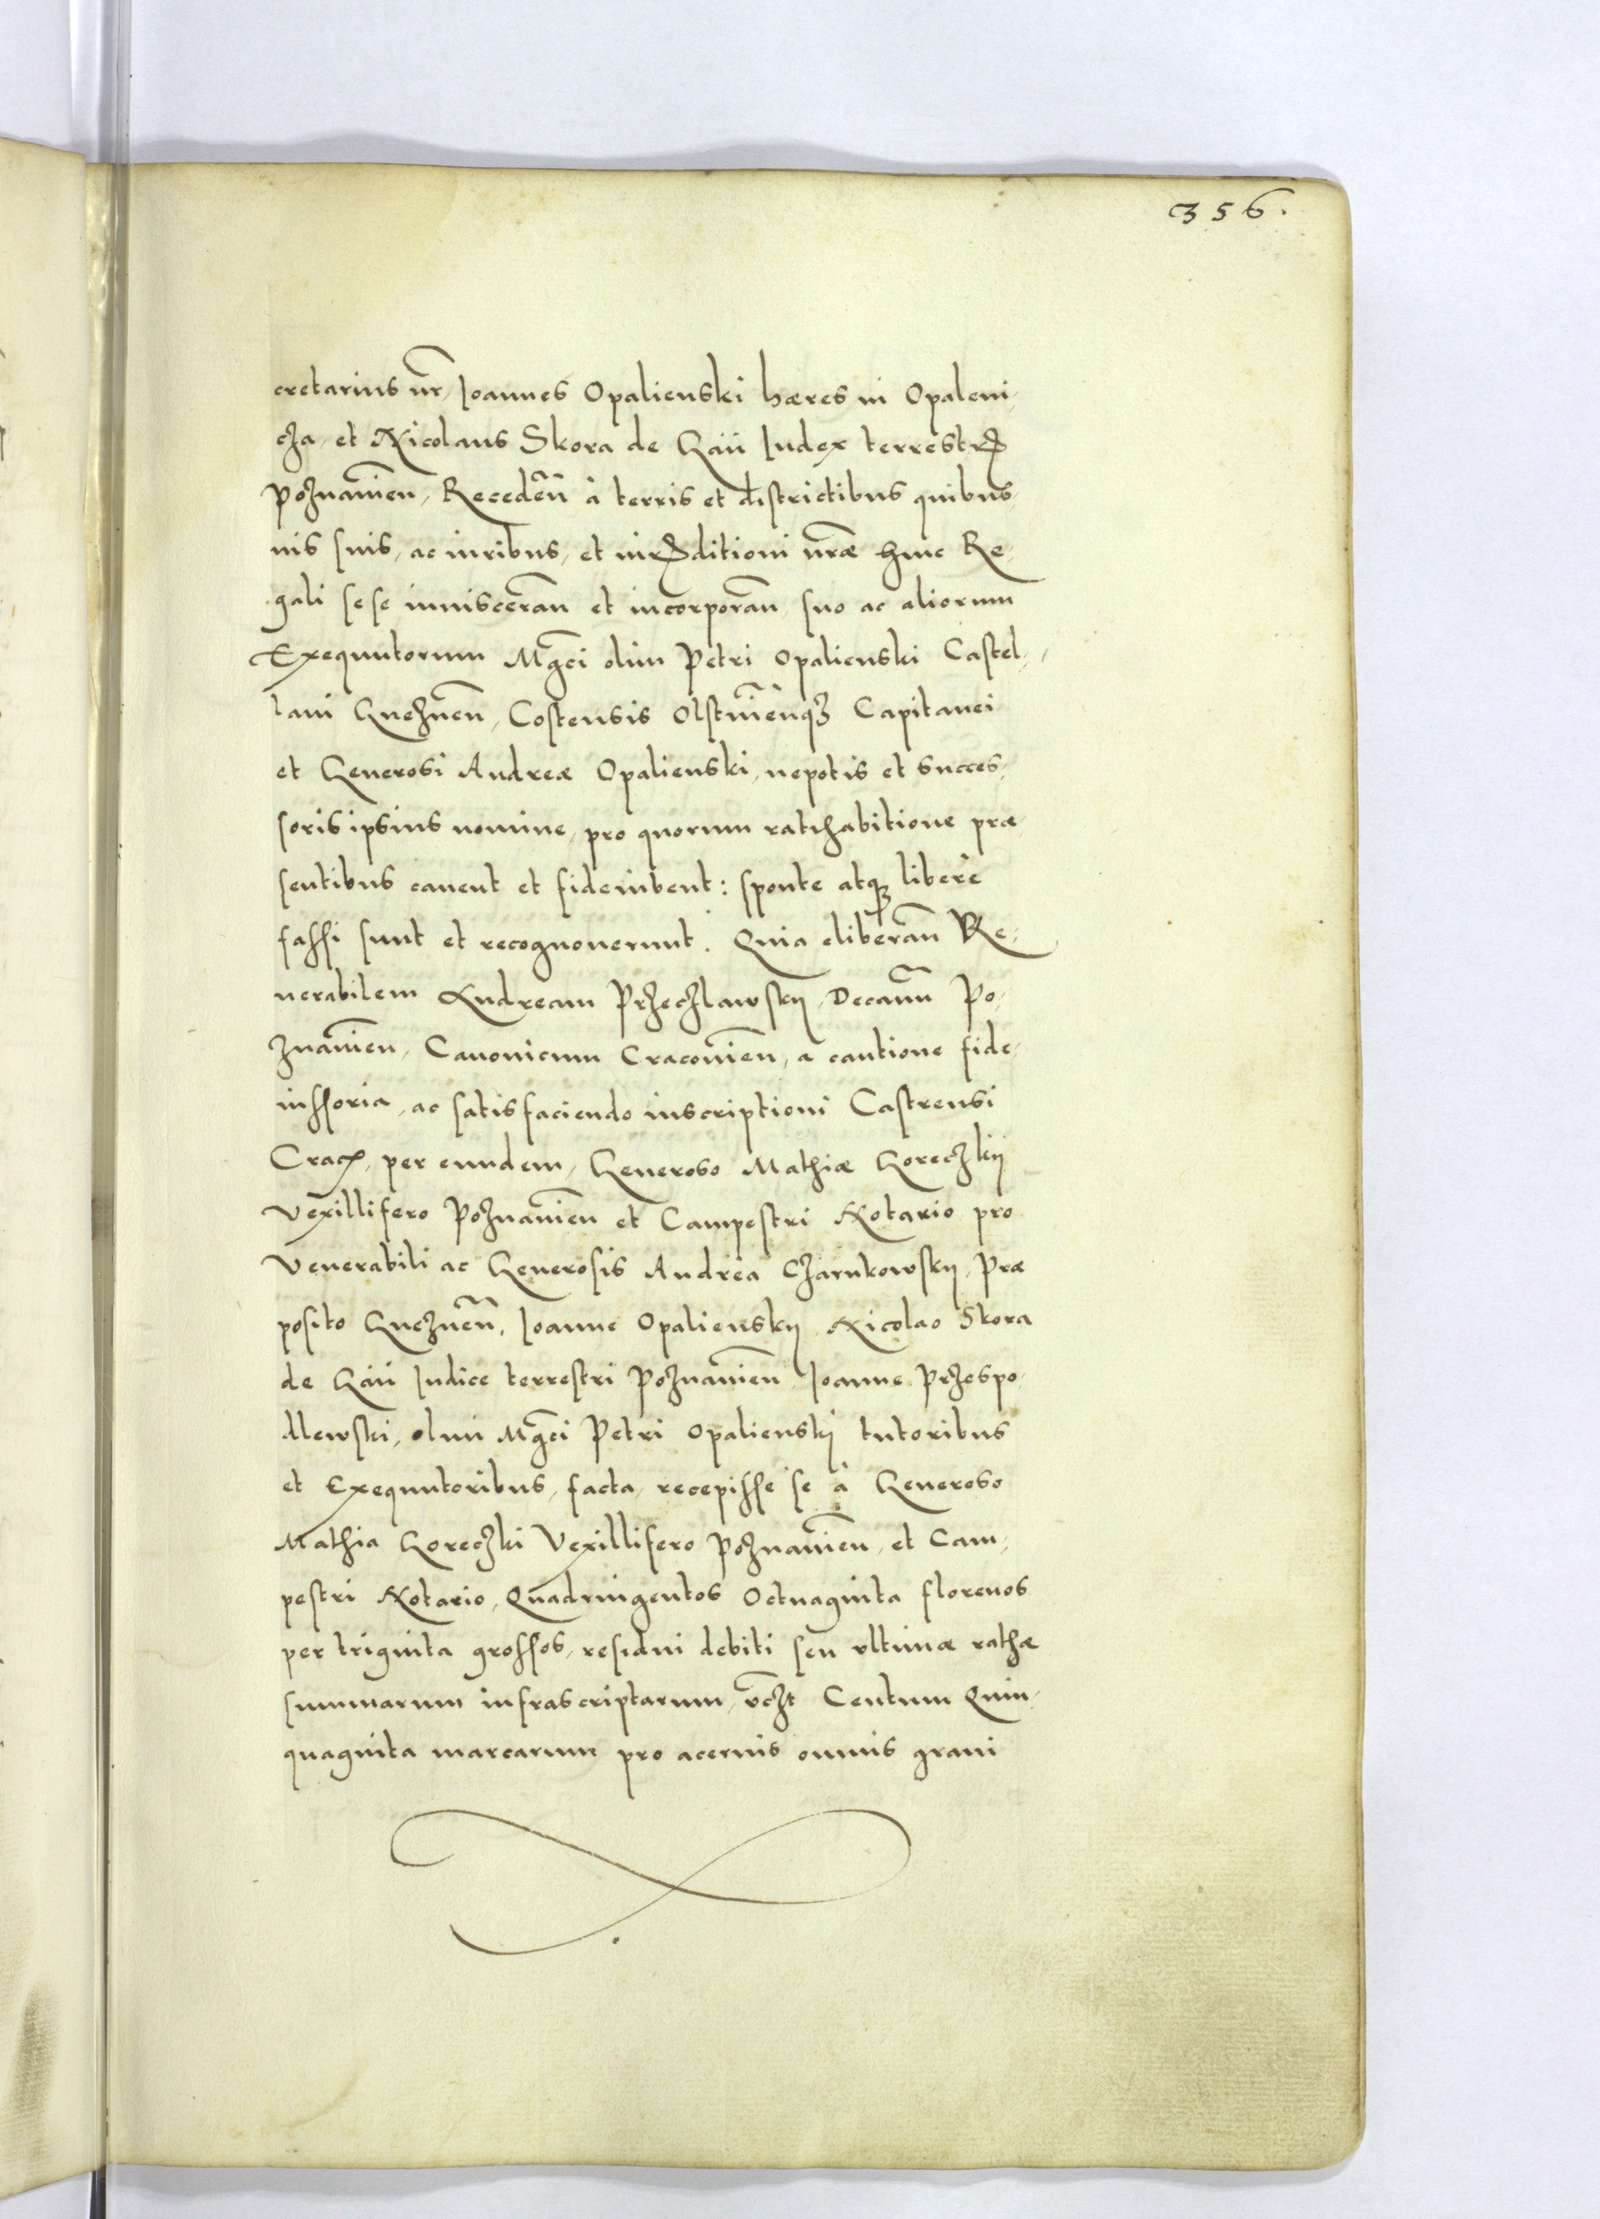 356.
cretarius nr̃, Ioannes Opalienski hæres in Opaleni-
cza, et Nicolaus Skora de Gaii Iudex terrestris
Poznanieñ, Recedeñ à terris et districtibus quibus
uis suis, ac iuribus, et iurisditioni nræ huic Re-
gali sese immisceñ et incorporañ, suo ac aliorum
Exequutorum Mgci olim Petri Opalienski Castel-
lani Gnezneñ, Costensis Olstinenq3 Capitanei
et Generosi Andreæ Opalienski, nepotis et succes-
soris ipsius nomine, pro quorum ratihabitione præ
sentibus cauent et fideiubent: sponte atq3 liberè
fassi sunt et recognouerunt. Quia eliberañ Ve-
nerabilem Andream Przeczlawskij, Decanũ Po-
znanieñ, Canonicum Cracouieñ, a cautione fide-
iussoria, ac satisfaciendo inscriptioni Castrensi
Crac, per eundem, Generoso Mathiæ Goreczkij
Vexillifero Poznanieñ et Campestri Notario pro
Venerabili ac Generosis Andrea Czarnkowskij, Præ
posito Gnezneñ, Ioanne Opalienskij Nicolao Skora
de Gaii Iudice terrestri Poznanieñ Ioanne Przespo-
llewski, olim Mgci Petri Opalienskij tutoribus
et Exequutoribus, facta, recepisse se à Generoso
Mathia Goreczki Vexillifero Poznanieñ, et Cam-
pestri Notario, Quadringentos Octuaginta florenos
per triginta grossos, residui debiti seu vltimæ rathæ
summarum infrascriptarum, vczt Centum Quin-
quaginta marcarum pro aceruis omnis grani